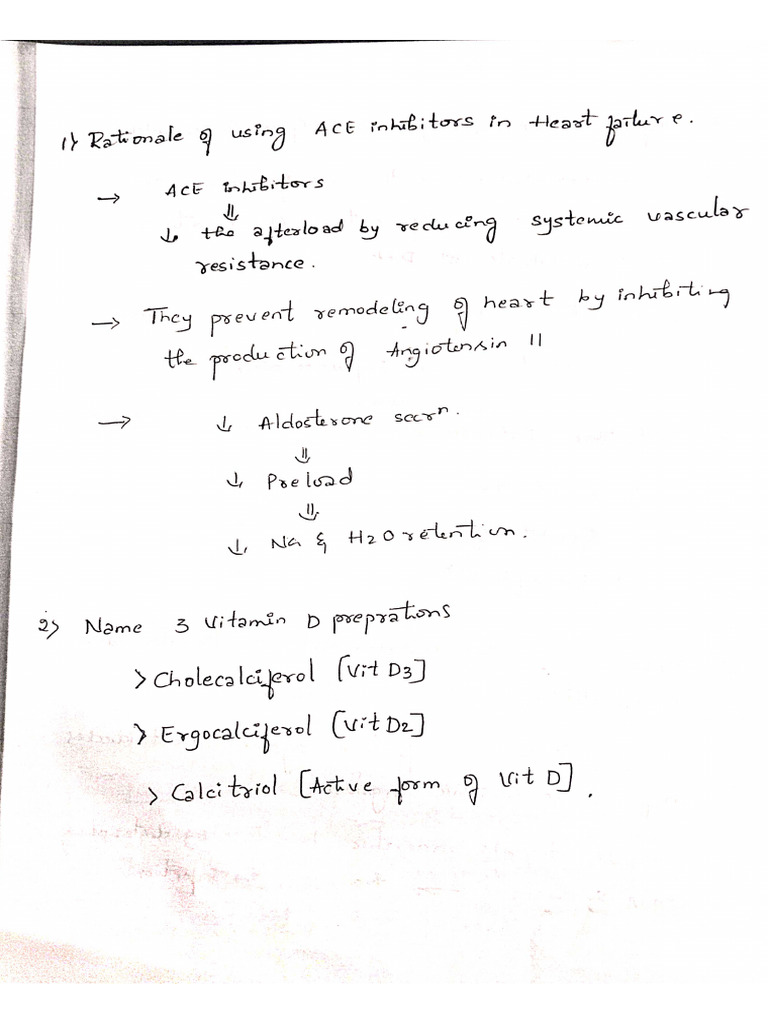 1) Rationale of using ACE inhibitors in Heart failure.
→ ACE inhibitors
⇓
↓ the afterload by reducing systemic vascular
resistance.
→ They prevent remodeling of heart by inhibiting
the production of Angiotensin II
→ ↓ Aldosterone secrⁿ.
⇓
↓ Preload
⇓
↓ Na & H2O retention.
2) Name 3 Vitamin D preprations
> Cholecalciferol [Vit D3]
> Ergocalciferol [Vit D2]
> Calcitriol [Active form of Vit D].